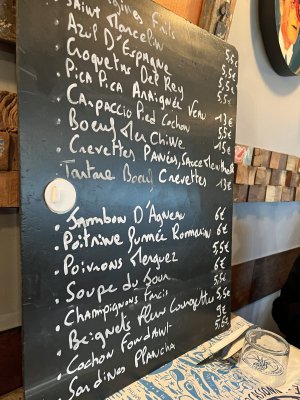 Saint Marcelin
Azul D'Espagne 5,5€
Croquetas Del Rey 5,5€
Pica Pica Araignée Veau 5,5€
Carpaccio Pied Cochon 13€
Boeuf Men Chiwe 5,5€
Crevettes Panées, Sauce Menthe 15€
Tartare Boeuf Crevettes 13€
Jambon D'Agneau 6€
Poitrine fumée Romarin 6€
Poivrons Merguez 5,5€
Soupe du Jour 6€
Champignons farcis 5,5€
Beignets fleur Courgettes 5,5€
Cochon Fondant 9€
Sardines Plancha 5,5€